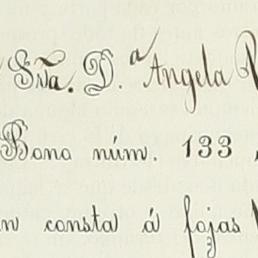 Sña. D.ª Angela
Bono núm. 133
n consta á fojas